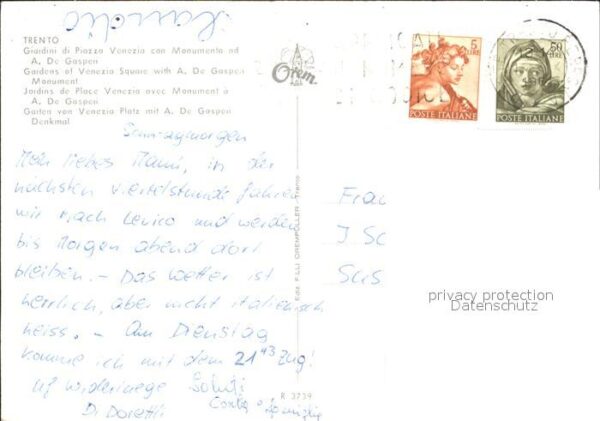 TRENTO
Giardini di Piazza Venezia con Monumento ad
A. De Gasperi
Gardens of Venezia Square with A. De Gasperi
Monument
Jardins de Place Venezia avec Monument à
A. De Gasperi
Garten von Venezia Platz mit A. De Gasperi
Denkmal
Orem
5
LIRE
POSTE ITALIANE
50
LIRE
POSTE ITALIANE
Sonntagmorgen
Mein liebes Mami, in der
nächsten Viertelstunde fahren
wir nach Levico und werden
bis Morgen abend dort
bleiben. - Das Wetter ist
herrlich, aber nicht italienisch
heiss. - Am Dienstag
komme ich mit dem 21 43 Zug!
Uf widerluege Saluti
Di Doretli
Ediz. F.LLI OREMPÜLLER - Trento
R 3739
Frau
J. Sc
Sus
privacy protection
Datenschutz